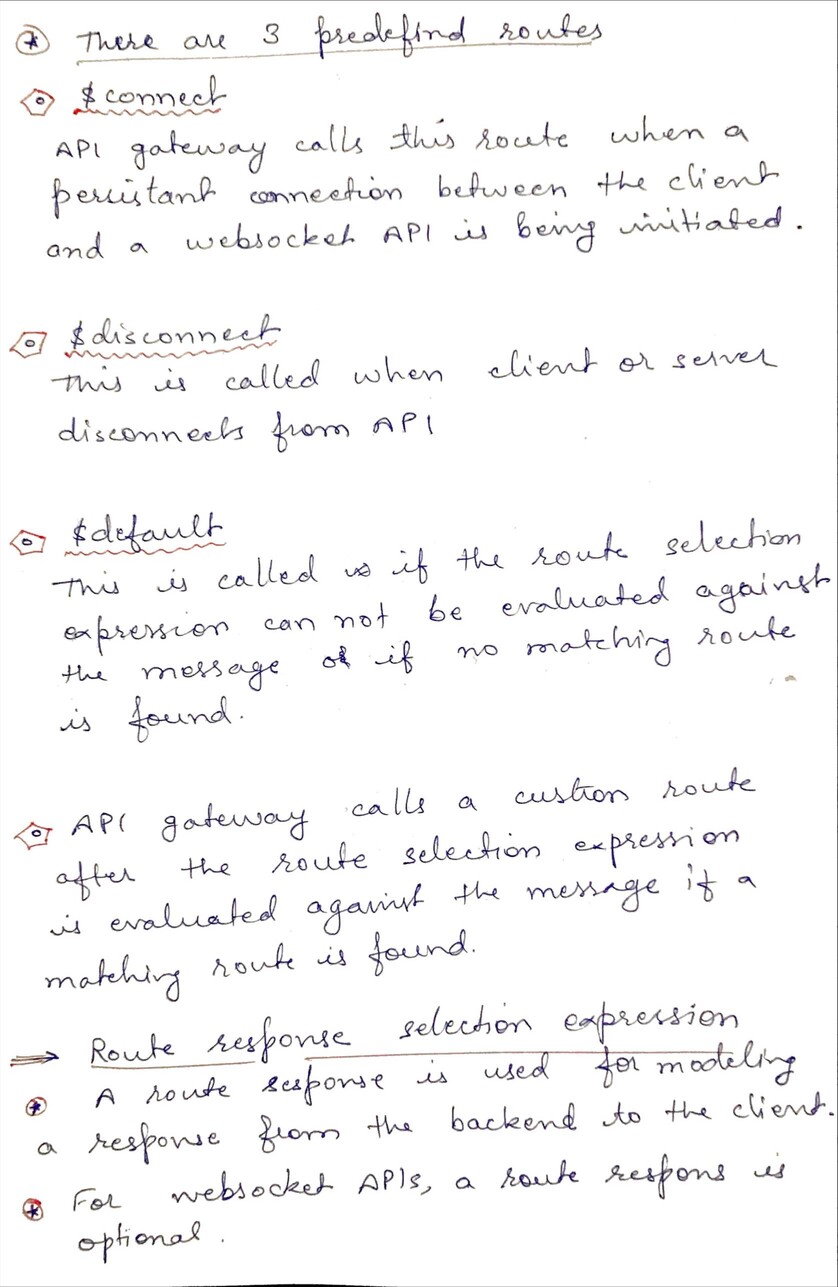 There are 3 predefind routes
$connect
API gateway calls this route when a
persistant connection between the client
and a websocket API is being initiated.
$disconnect
This is called when client or server
disconnects from API
$default
This is called if the route selection
expression can not be evaluated against
the message or if no matching route
is found.
API gateway calls a custion route
after the route selection expression
is evaluated against the message if a
matching route is found.
⇒ Route response selection expression
A route response is used for modeling
a response from the backend to the client.
For websocket APIs, a route respons is
optional.